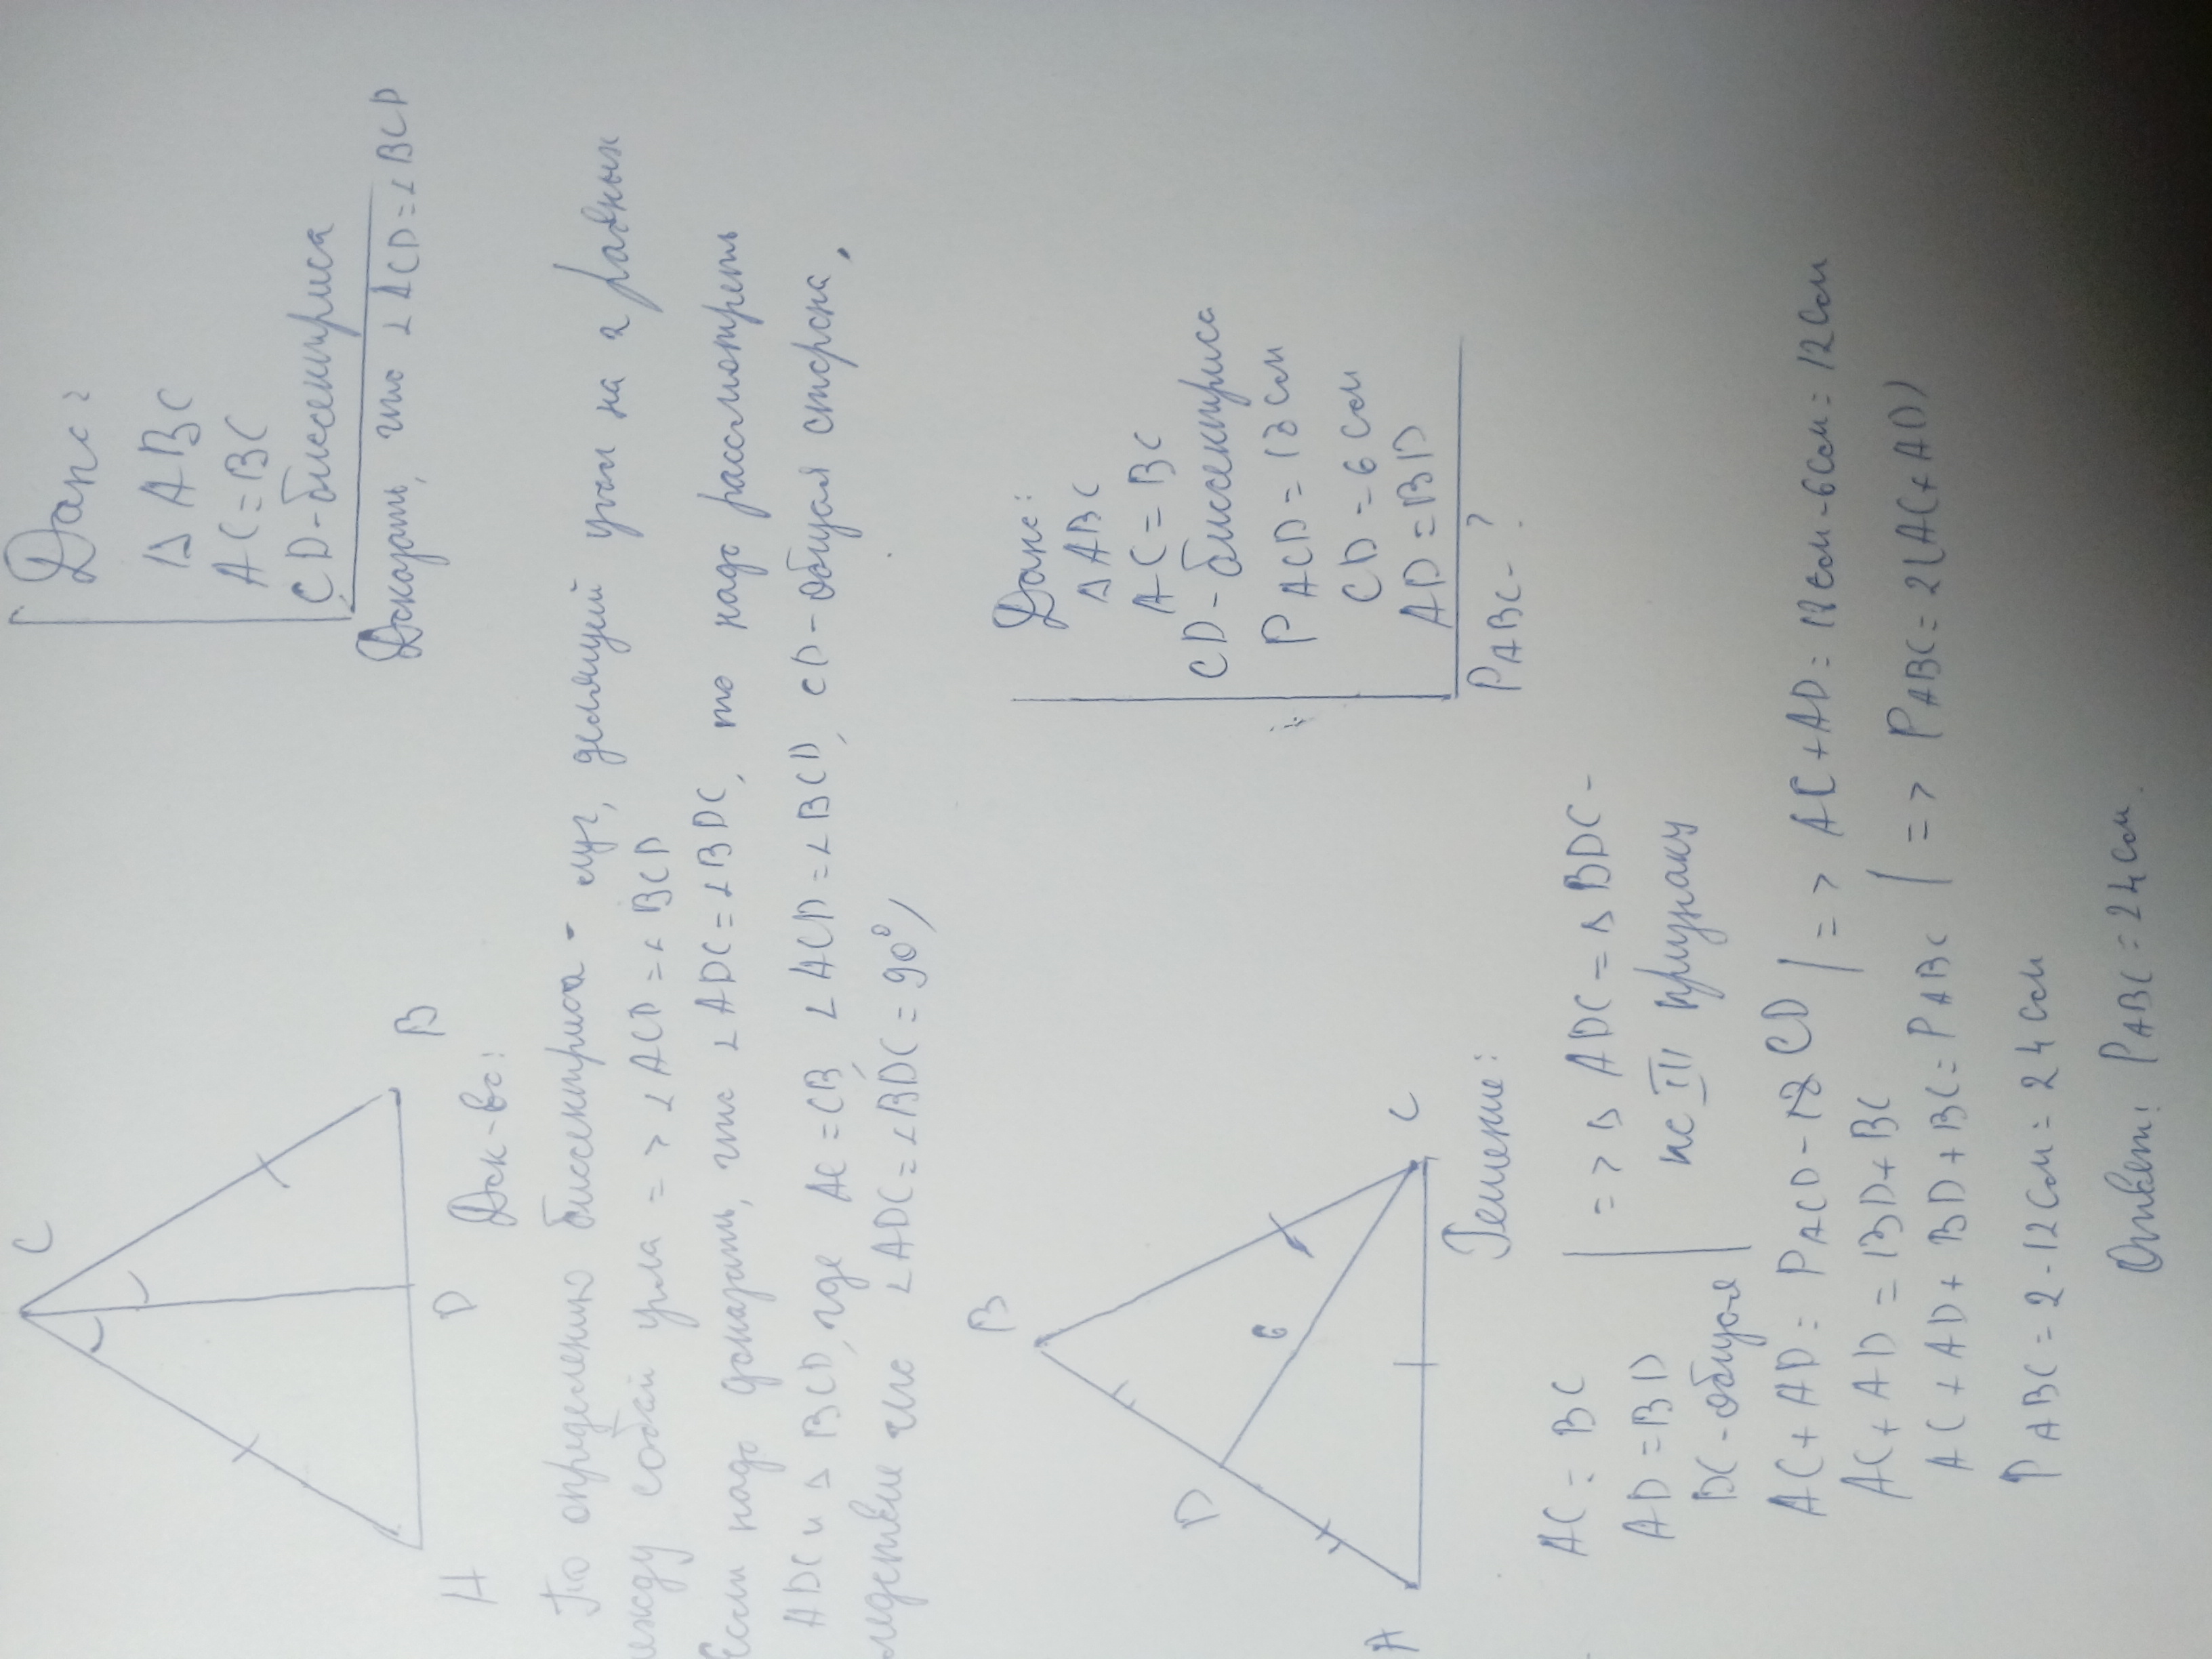 C
Дано:
∆ ABC
AC = BC
CD - биссектриса
Доказать, что ∠ ACD = ∠ BCD
A D B
Док-во:
По определению биссектриса - луч, делящий угол на 2 равных
между собой угла => ∠ ACD = ∠ BCD
Если надо доказать, что ∠ ADC = ∠ BDC, то надо рассмотреть
∆ ADC и ∆ BCD, где AC = CB, ∠ ACD = ∠ BCD, CD - общая сторона,
следственно ∠ ADC = ∠ BDC = 90°
B
D
6
A C
Дано:
∆ ABC
AC = BC
CD - биссектриса
P ACD = 18 см
CD = 6 см
AD = BD
P ABC - ?
Решение:
AC = BC
AD = BD
DC - общая
=> ∆ ADC = ∆ BDC -
по III признаку
AC + AD = P ACD - CD
AC + AD = BD + BC
=> AC + AD = 18 см - 6 см = 12 см
AC + AD + BD + BC = P ABC
=> P ABC = 2(AC + AD)
P ABC = 2 · 12 см = 24 см
Ответ: P ABC = 24 см.